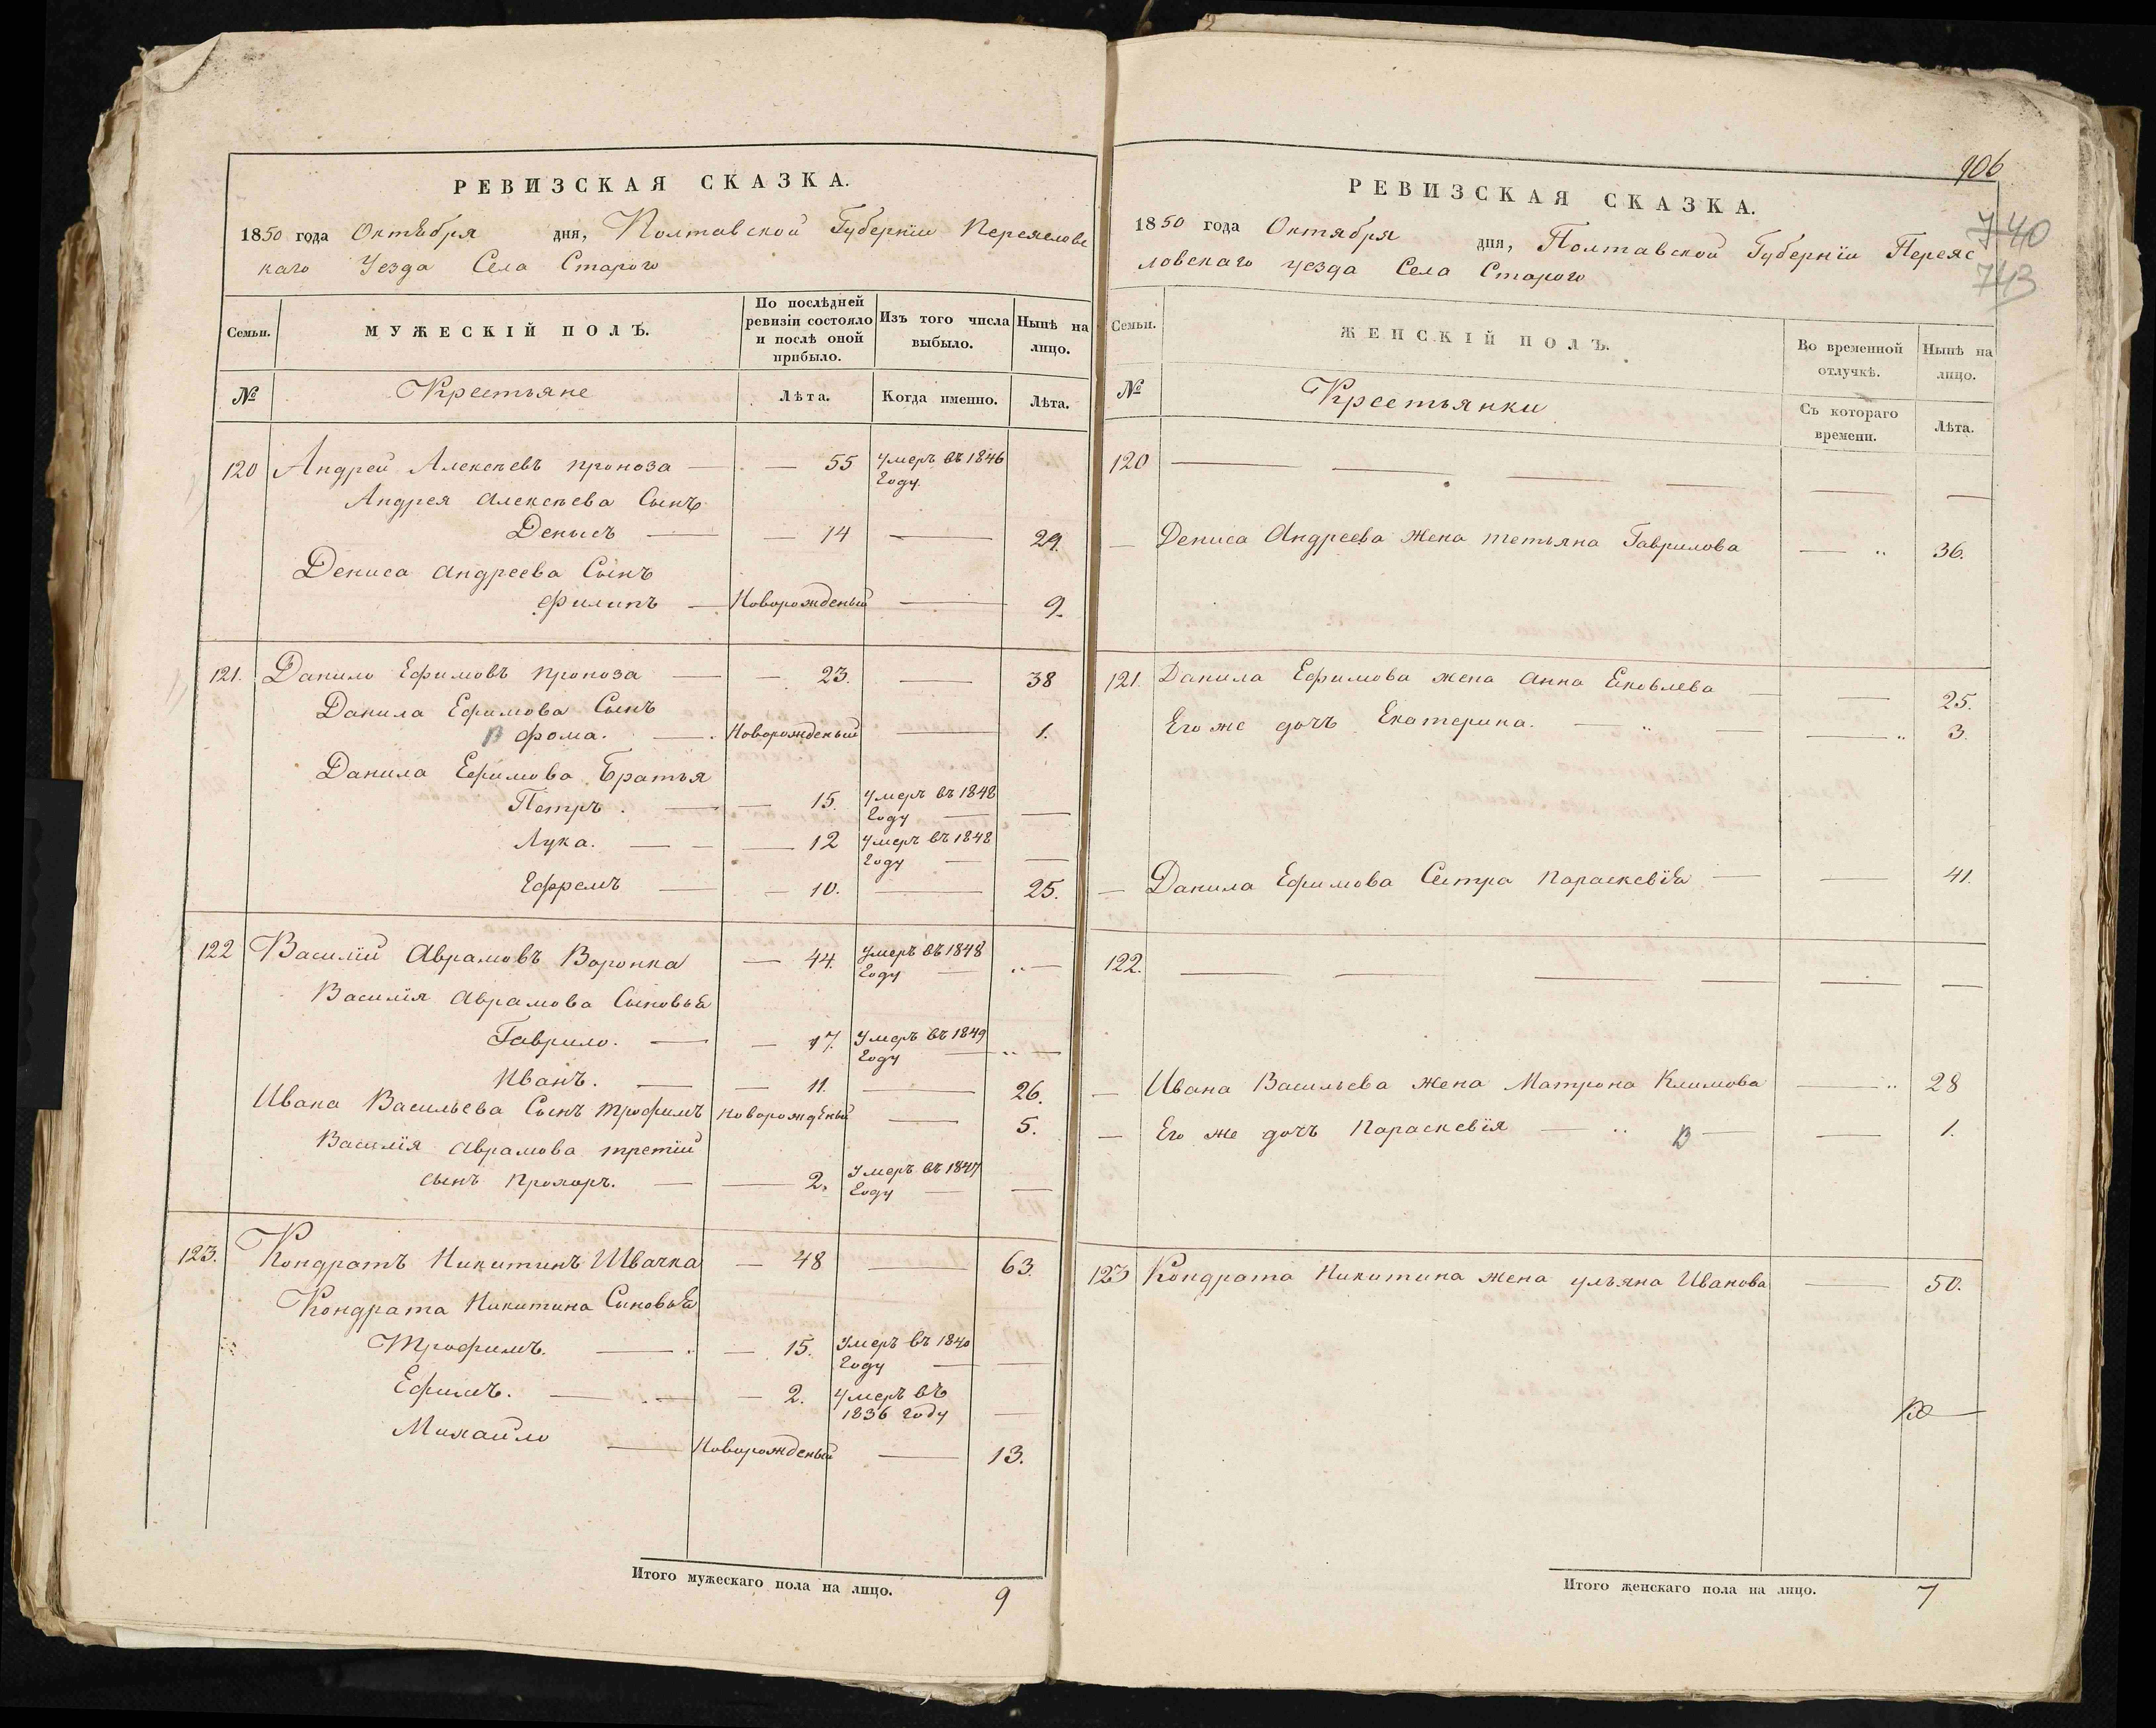 РЕВИЗСКАЯ СКАЗКА.
1850 года Октября дня, Полтавской Губерніи Переяслове
каго Уезда Села Старого
Семьи.
МУЖЕСКІЙ ПОЛЪ.
По послѣдней
ревизіи состояло
и послѣ оной
прибыло.
Изъ того числа
выбыло.
Нынѣ на
лицо.
№
Крестьяне
Лѣта.
Когда именно.
Лѣта.
120 Андрей Алексѣевъ Проноза — 55 Умеръ въ 1846
Году.
Андрея Алексѣева Сынъ
Денисъ — 14 — 29.
Дениса Андреева Сынъ
Филипъ — Новорожденый — 9.
121. Данило Ефимовъ Проноза — 23. — 38
Данила Ефимова Сынъ
Фома. — Новорожденый — 1.
Данила Ефимова Братья
Петръ. — 15. Умеръ въ 1848
Году —
Лука. — 12 Умеръ въ 1848
Году —
Ефремъ — 10. — 25.
122 Василій Аврамовъ Воронка — 44. Умеръ въ 1848
Году —
Василія Аврамова Сыновья
Гаврило. — 17. Умеръ въ 1849
Году —
Иванъ. — 11. — 26.
Ивана Васильева Сынъ Трофимъ Новорожденый — 5.
Василія Аврамова третій
сынъ Прохоръ. — 2. Умеръ въ 1847
Году —
123. Кондратъ Никитинъ Швачка — 48 — 63.
Кондрата Никитина Сыновья
Трофимъ. — 15. Умеръ въ 1840
Году —
Ефимъ. — 2. Умеръ въ
1836 Году —
Михайло — Новорожденый — 13.
Итого мужескаго пола на лицо. 9
906
740
743
РЕВИЗСКАЯ СКАЗКА.
1850 года Октября дня, Полтавской Губерніи Переяс
ловскаго уезда Села Старого
Семьи.
ЖЕНСКІЙ ПОЛЪ.
Во временной
отлучкѣ.
Нынѣ на
лицо.
№
Крестьянки
Съ котораго
времени.
Лѣта.
120 — — — — — —
— Дениса Андреева Жена Тетьяна Гаврилова — 36.
121. Данила Ефимова жена Анна Ековлева — 25.
Его же дочъ Екатерина. — 3.
— Данила Ефимова Сестра Параскевія — 41.
122. — — — — — —
— Ивана Васильева Жена Матрона Климова — 28
— Его же дочъ Параскевія — 1.
123 Кондрата Никитина жена Ульяна Иванова — 50.
Итого женскаго пола на лицо. 7